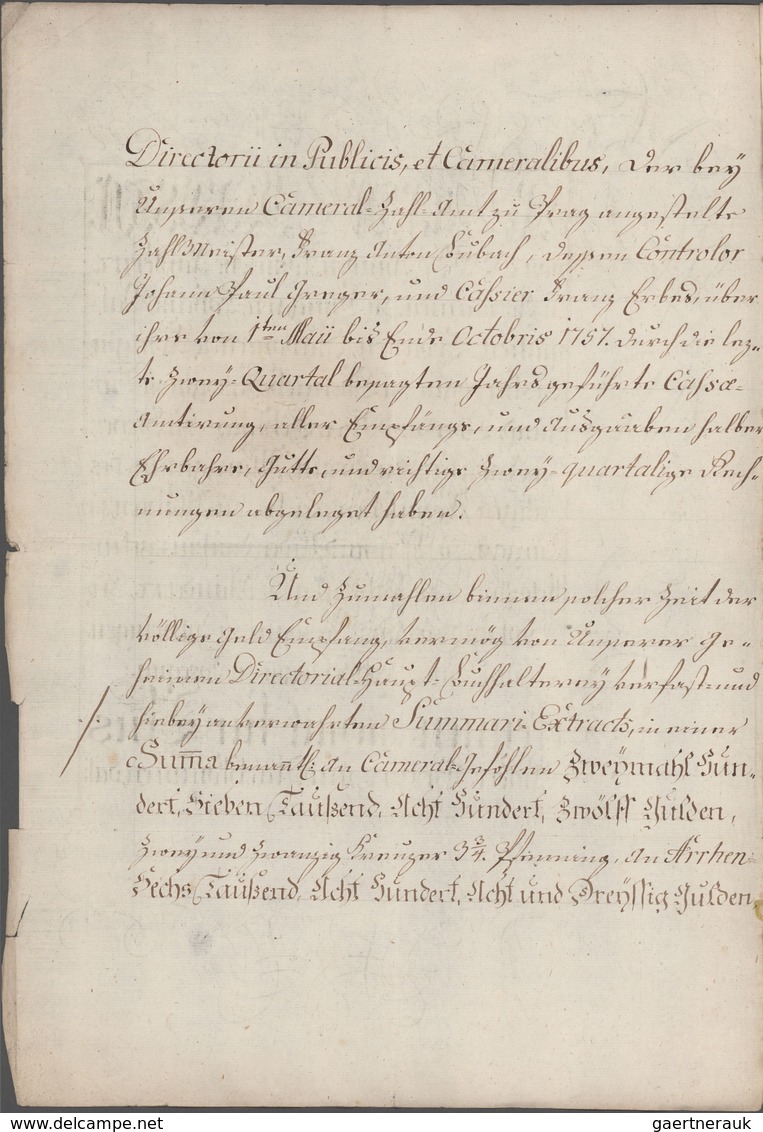 Directorii in Publicis, et Cameralibus, der bey
Unseren Cameral-Zahl-Amt zu Prag angestelte
Zahlmeister, Franz Anton Lubach, dessen Controlor
Johann Paul Greger, und Cassier Franz Erbes, über
ihre von 1ten Maii bis Ende Octobris 1757. durch die lez-
te zwey-Quartal besagten Jahrs geführte Cassæ-
Amtirung, aller Empfängs, und Ausgaaben halber
Ehrbahre, Gutte, und richtige zwey-quartalige Rech-
nungen abgeleget haben.
Und zumahlen binnen solcher Zeit der
völlige Geld Empfang, vermög von Unserer Ge-
heimen Directorial-Haupt-Buchhalterey verfast- und
hiebey anverwahrten Summari-Extracts, in einer
Summa benantl: an Cameral-Geföhlen Zweymahl Hun-
dert, Sieben Taußend, Acht Hundert, Zwölff Gulden,
Zwey und zwanzig Kreuzer 3 3/4. Pfenning, an Arrhen-
Sechs Taußend, Acht Hundert, Acht und Dreyssig Gulden,
www.delcampe.net
gaertnerauk